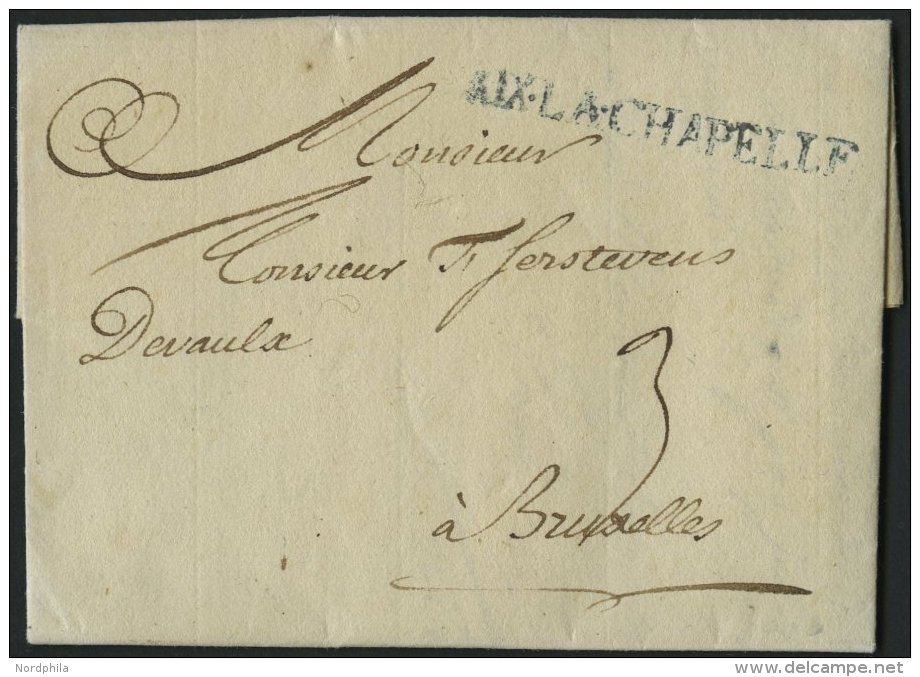 AIX·LA·CHAPELLE
Monsieur
Monsieur F Serstevens
Devaulx
3
à Bruxelles
Nordphila
www.delcampe.net